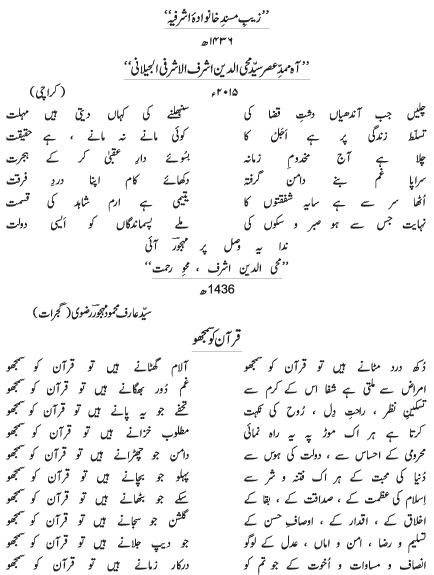 ’’زیبِ مسندِ خانوادۂ اشرفیہ‘‘
۱۴۳۶ھ
’’آہ ممدِّ عصر سیّد محی الدین اشرف الاشرفی الجیلانی‘‘
۲۰۱۵ء (کراچی)
چلیں جب آندھیاں دشتِ قضا کی سنبھلنے کی کہاں دیتی ہیں مہلت
تسلّط زندگی پر ہے اَجَل کا کوئی مانے نہ مانے ، ہے حقیقت
چلا ہے آج مخدومِ زمانہ بسُوئے دارِ عقبیٰ کر کے ہجرت
سراپا غم بنے دامن گرفتہ دکھائے کام اپنا دردِ فرقت
اُٹھا سر سے ہے سایہ شفقتوں کا یتیمی ہے ارم شاہد کی قسمت
نہایت جس سے ہو صبر و سکوں کی ملے پسماندگاں کو ایسی دولت
ندا یہ وصل پر مہجورؔ آئی
’’محی الدین اشرف ، محوِ رحمت‘‘
1436ھ
سیّد عارف محمود مہجورؔ رضوی (گجرات)
قرآن کو سمجھو
دُکھ درد مٹانے ہیں تو قرآن کو سمجھو آلام گھٹانے ہیں تو قرآن کو سمجھو
امراض سے ملتی ہے شفا اس کے کرم سے غم دُور بھگانے ہیں تو قرآن کو سمجھو
تسکینِ نظر ، راحتِ دِل ، رُوح کی نکہت تحفے جو یہ پانے ہیں تو قرآن کو سمجھو
کرتا ہے ہر اک موڑ پہ یہ راہ نمائی مطلوب خزانے ہیں تو قرآن کو سمجھو
محرومی کے احساس سے ، دولت کی ہوس سے دامن جو چھڑانے ہیں تو قرآن کو سمجھو
دُنیا کی محبت کے ہر اک فتنہ و شر سے پہلو جو بچانے ہیں تو قرآن کو سمجھو
اِسلام کی عظمت کے ، صداقت کے ، بقا کے سکے جو بٹھانے ہیں تو قرآن کو سمجھو
اخلاق کے ، اقدار کے ، اوصافِ حسن کے گلشن جو سجانے ہیں تو قرآن کو سمجھو
تسلیم و رضا ، امن و اماں ، عدل کے لوگو جو دیپ جلانے ہیں تو قرآن کو سمجھو
انصاف و مساوات و اُخوت کے جو تم کو درکار زمانے ہیں تو قرآن کو سمجھو